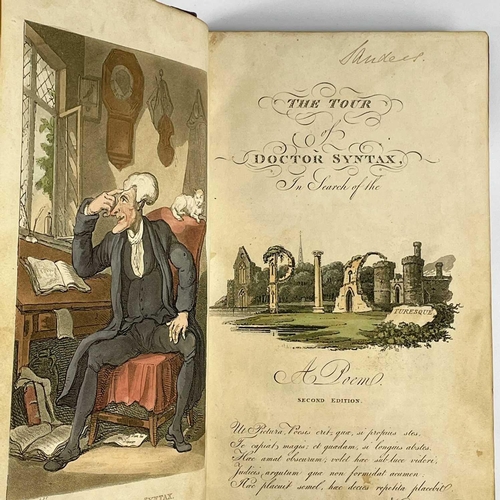 Sanders.
THE TOUR
of
DOCTOR SYNTAX,
In Search of the
PICTURESQUE
A Poem.
SECOND EDITION.
Ut Pictura, Poesis erit; quæ, si propius stes,
Te capiat magis; et quædam, si longius abstes.
Hæc amat obscurum; volet hæc sub luce videri,
Judicis argutum quæ non formidat acumen
Hæc placuit semel, hæc decies repetita placebit
SYNTAX.